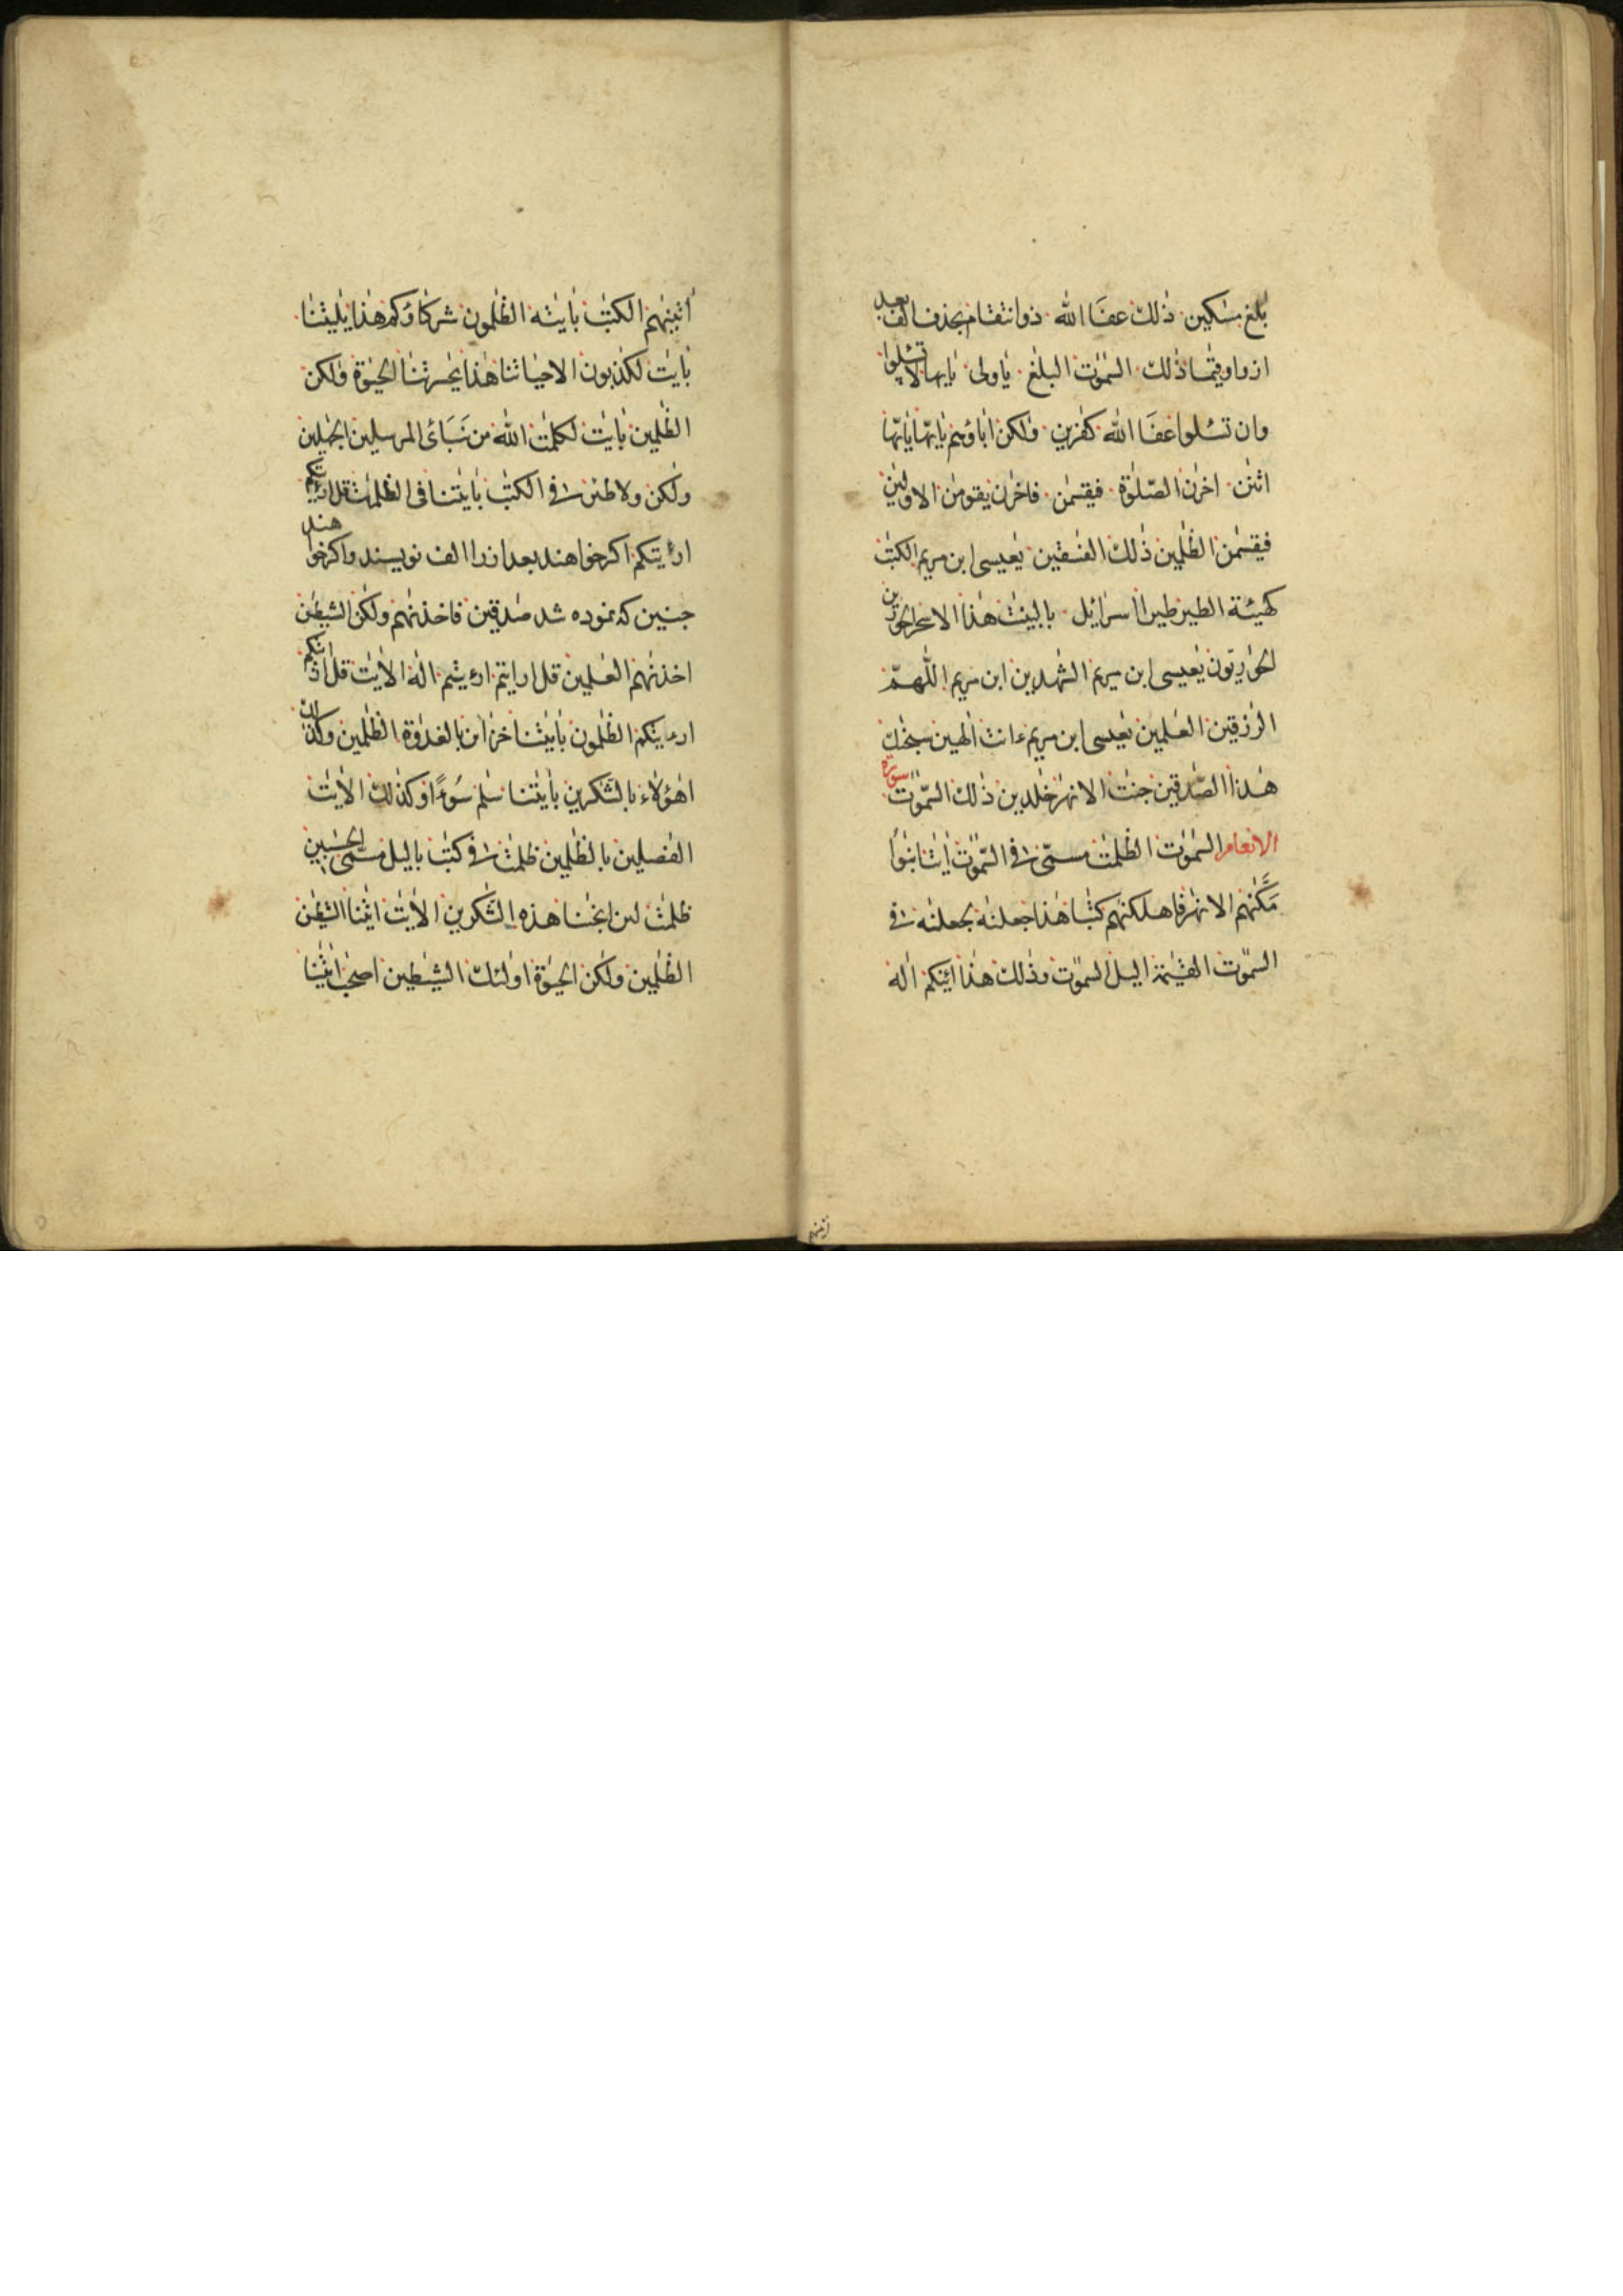 بلغ مسكين ذلك عفا الله ذو انتقام بحذف الف بعد
از واو قيما ذلك السموت البلغ ياولى يايها لا تسئلوا
وان تسئلوا عفا الله كفرين ولكن اباؤهم يايها يايها
اثنن اخرن الصلوة فيقسمن فاخرن يقومن الاولين
فيقسمن الظلمين ذلك الفسقين يعيسى ابن مريم الكتب
كهيئة الطير طيرا اسرائل بالبينت هذا الا سحر الحورين
الحواريون يعيسى ابن مريم الشهدين ابن مريم اللهم
الرزقين العلمين يعيسى ابن مريم ءانت الهين سبحنك
هذا الصدقين جنت الانهر خلدين ذلك السموت سورة
الانعام السموت الظلمت مسمى فى السموت ايتنا انبؤا
مكنهم الانهر فاهلكنهم كتبا هذا جعلنه لجعلنه فى
السموت القيمة اليل السموت وذلك هذا ائنكم اله
اتينهم الكتب بايته الظلمون شركاؤكم هذا يليتنا
بايت لكذبون الا حياتنا هذا يحسرتنا الحيوة ولكن
الظلمين بايت لكلمت الله من نبائ المرسلين الجهلين
ولكن ولا طئر فى الكتب بايتنا فى الظلمت قل ارءيتكم
ارءيتكم اكر خواهند بعد از را الف نويسند واكر خواهند
جنين كه نموده شد صدقين فاخذنهم ولكن الشيطن
اخذنهم العلمين قل ارايتم ارءيتم اله الايت قل ارءيتكم
ارءيتكم الظلمون بايتنا خزائن بالغدوة الظلمين وكذلك
اهؤلاء بالشكرين بايتنا سلم سوءا وكذلك الايت
الفصلين بالظلمين ظلمت فى كتب باليل مسمى الحسبين
ظلمت لئن انجنا هذه الشكرين الايت ايتنا الشيطن
الظلمين ولكن الحيوة اولئك الشيطين اصحب ائتنا